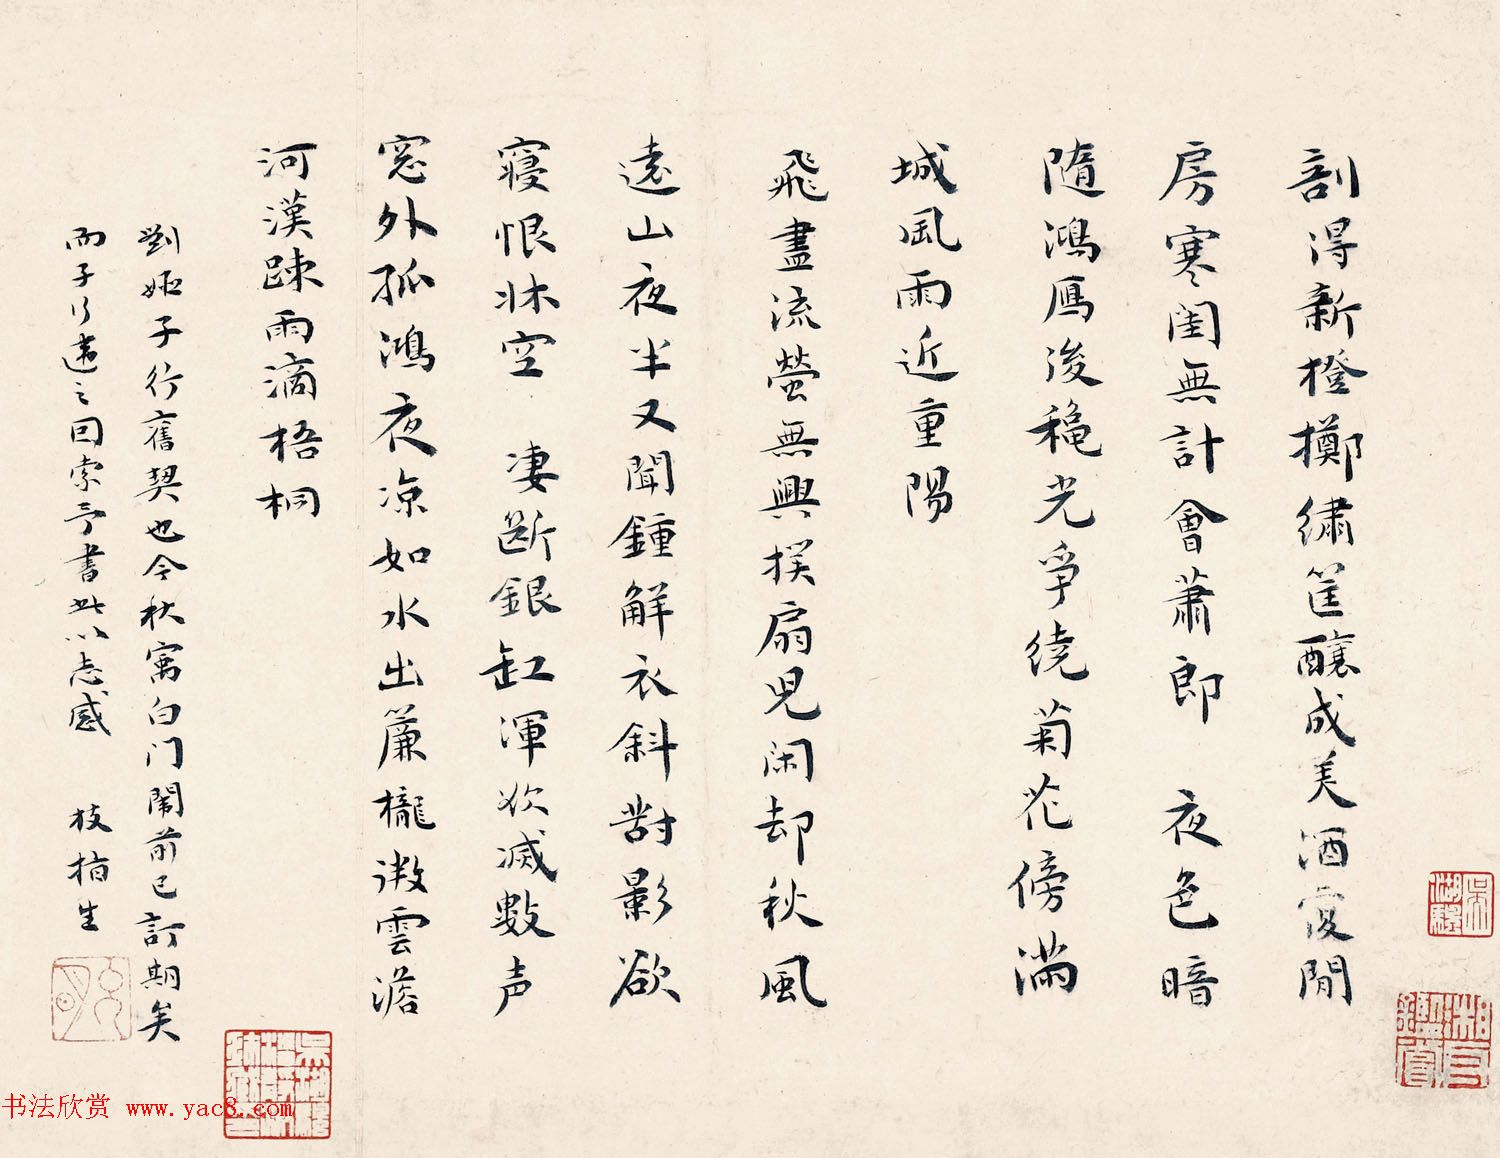 剖得新橙擲繡筐釀成美酒復開
房寒閨無計會蕭郎 夜色暗
隨鴻鴈後穐光爭繞菊花傍滿
城風雨近重陽
飛盡流螢無興撲扇兒閑却秋風
遠山夜半又聞鍾解衣斜對影欲
寢恨牀空 凄斷銀缸渾欲滅數声
窓外孤鴻夜凉如水出簾櫳微雲澹
河漢疎雨滴梧桐
劉姬子行舊契也今秋寓白门鬧前已訂期矣
而子行違之因索予書此以志感 枝指生
书法欣赏 www.yac8.com